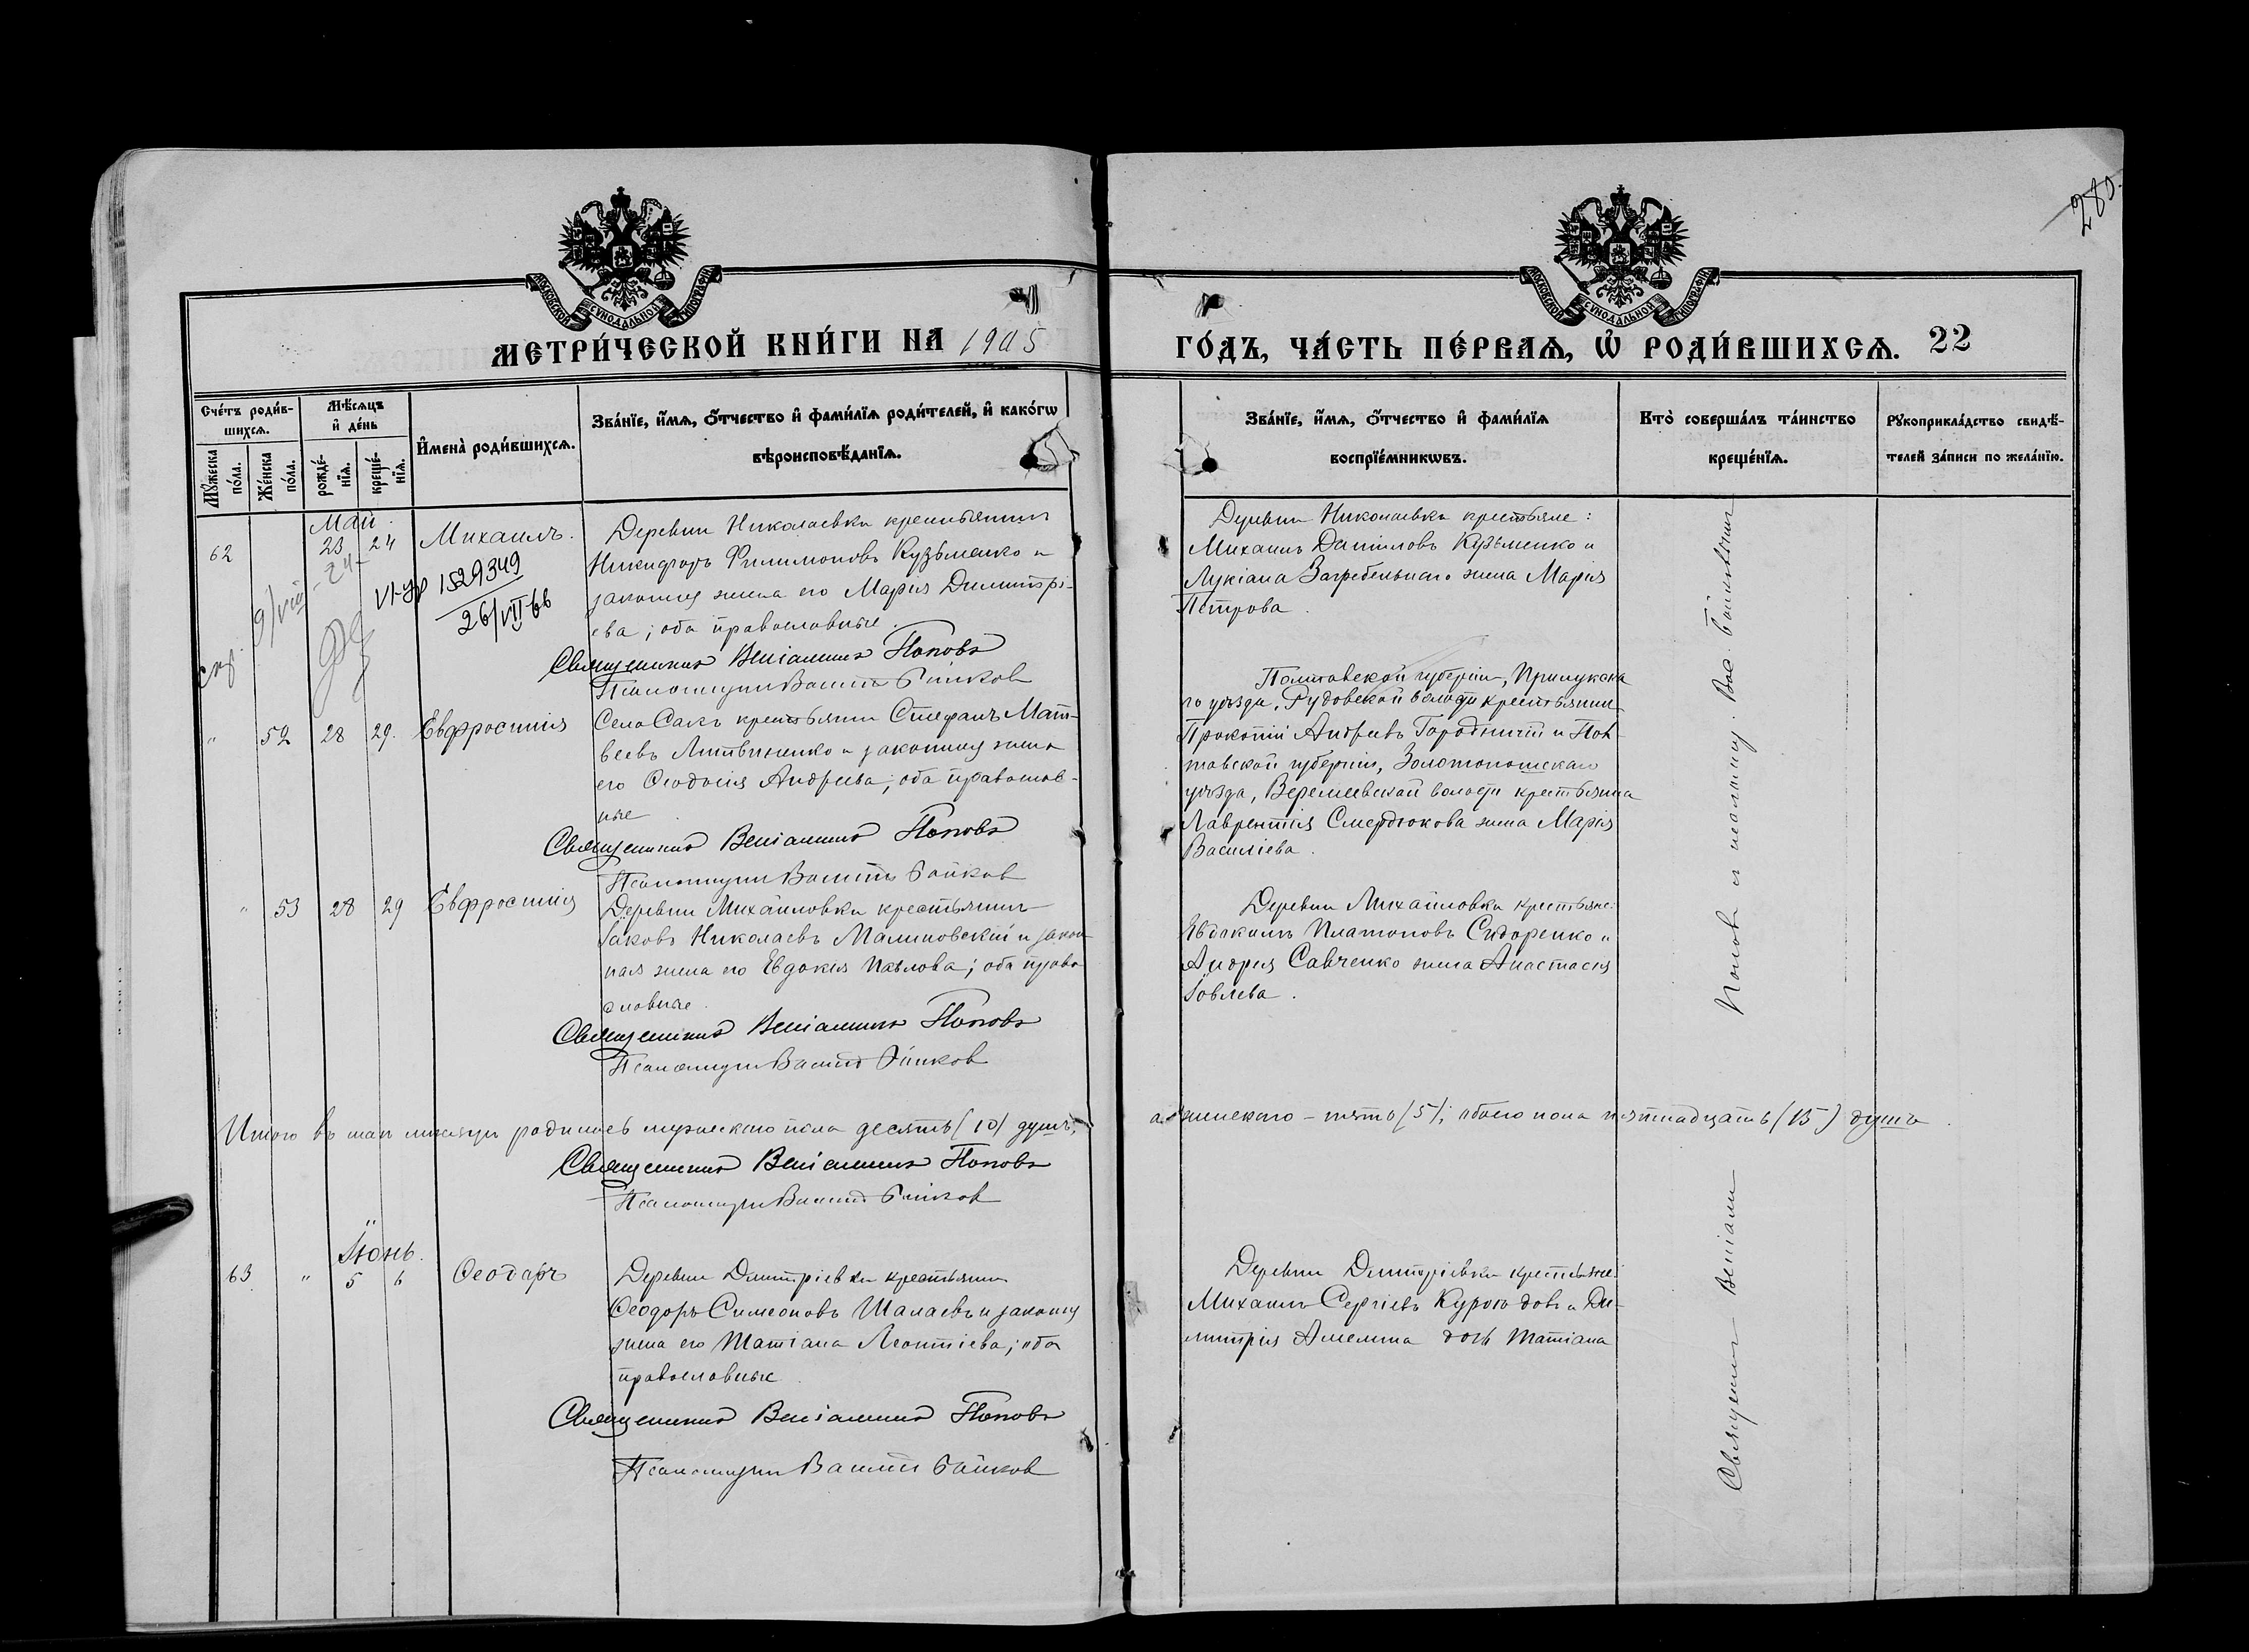 280.
МОСКОВСКОЙ СѴНОДАЛЬНОЙ ТИПОГРАФІИ
МОСКОВСКОЙ СѴНОДАЛЬНОЙ ТИПОГРАФІИ
МЕТРИ́ЧЕСКОЙ КНИ́ГИ НА 1905
ГО́ДЪ, ЧА́СТЬ ПЕ́РВАѦ, Ѡ҆ РОДИ́ВШИХСѦ. 22
Сче́тъ роди́в-
шихсѧ.
Мꙋжеска
по́ла.
Же́нска
по́ла.
Мѣ́сѧцъ
и҆ де́нь
рожде́-
нїѧ.
креще́-
нїѧ.
И҆мена̀ роди́вшихсѧ.
Зва́нїе, и҆́мѧ, ѻ҆́тчество и҆ фами́лїѧ роди́телей, и҆ како́гѡ
вѣроисповѣ́данїѧ.
Зва́нїе, и҆́мѧ, ѻ҆́тчество и҆ фами́лїѧ
воспрїе́мникѡвъ.
Кто̀ соверша́лъ та́инство
креще́нїѧ.
Рꙋкоприкла́дство свидѣ́-
телей за́писи по жела́нїю.
Май
62 23 24 Михаилъ.
1529349
26/VII-66
Деревни Николаевки крестьянинъ
Никифоръ Филимоновъ Кузьменко и
законная жена его Марія Димитрі-
ева; оба православные.
Священникъ Веніаминъ Поповъ
Псаломщикъ Василій Байков
Деревни Николаевки крестьяне:
Михаилъ Даниловъ Кузьменко и
Лукіана Загребельнаго жена Марія
Петрова.
" 52 28 29. Евфросинія
Село Сакъ крестьянинъ Стефанъ Мат-
веевъ Литвиненко и законная жена
его Ѳеодосія Андреева; оба православ-
ные
Священникъ Веніаминъ Поповъ
Псаломщикъ Василій Байков
Полтавской губерніи, Прилукска
го уѣзда, Рудовской волости крестьянинъ
Прокопій Андреевъ Городничій и Пол-
тавской губерніи, Золотоношскаго
уѣзда, Веремеевской волости крестьянина
Лаврентія Смердюкова жена Марія
Василіева.
" 53 28 29 Евфросинія
Деревни Михайловки крестьянинъ
Іаковъ Николаевъ Малиновскій и закон
ная жена его Евдокія Павлова; оба право
славные.
Священникъ Веніаминъ Поповъ
Псаломщикъ Василій Байков
Деревни Михайловки крестьяне:
Евдокимъ Платоновъ Сидоренко и
Андрея Савченко жена Анастасія
Іовлева.
Итого въ маѣ мѣсяцѣ родилось мужескаго пола десять (10) душъ,
а женскаго – пять (5); обоего пола пятнадцать (15) душъ.
Священникъ Веніаминъ Поповъ
Псаломщикъ Василій Байков
Іюнь.
63 " 5 6 Ѳеодоръ
Деревни Димитріевки крестьянинъ
Ѳеодоръ Симеоновъ Шалаевъ и законная
жена его Татіана Леонтіева; оба
православные.
Священникъ Веніаминъ Поповъ
Псаломщикъ Василій Байков
Деревни Димитріевки крестьяне:
Михаилъ Сергіевъ Курогодовъ и Ди-
митрія Амелина дочь Татіана
Священникъ Веніаминъ Поповъ и псаломщикъ Вас. Байковъ